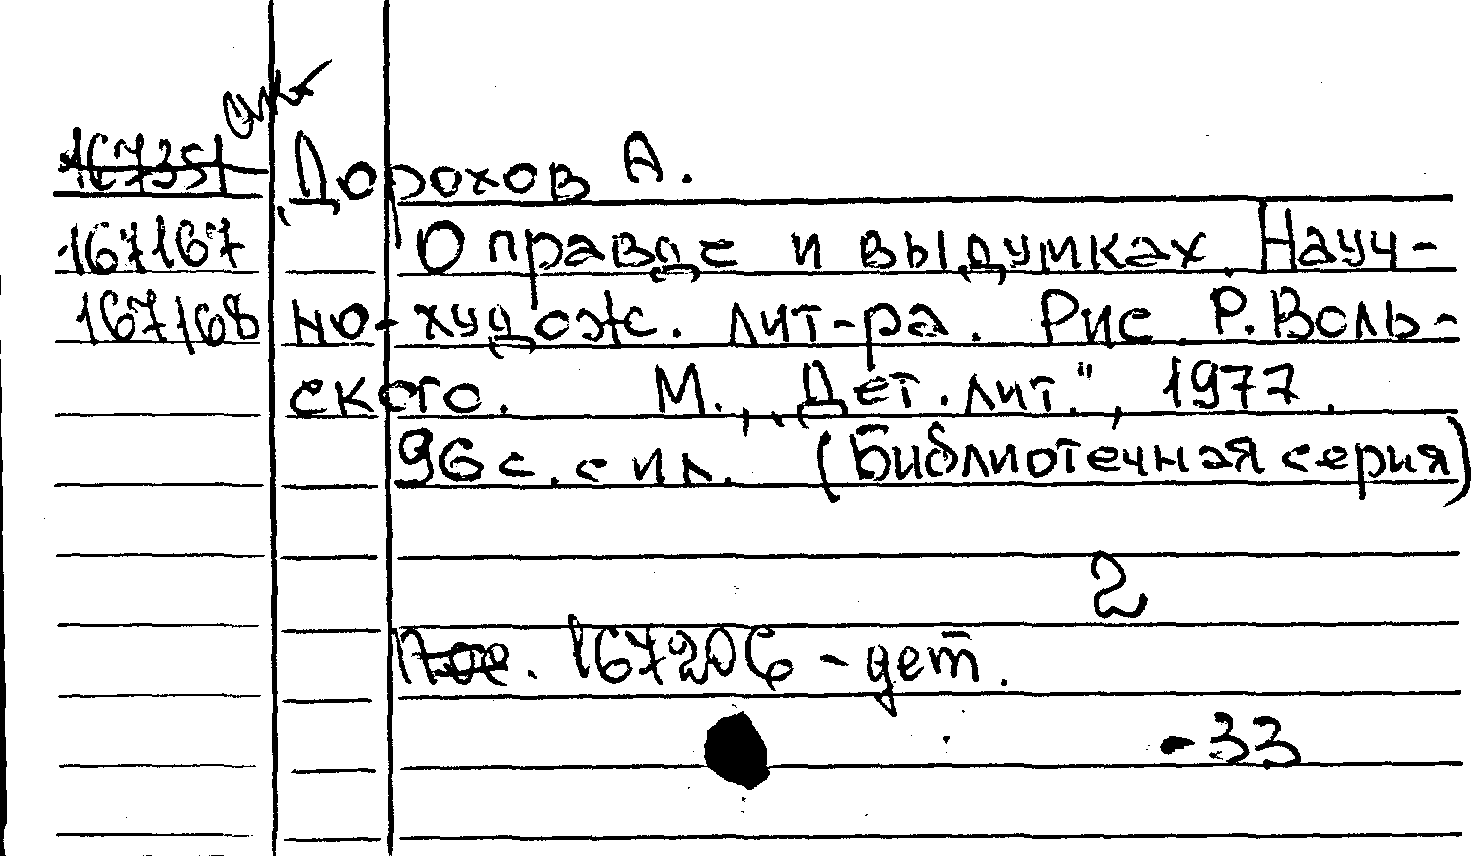 167351 Дорохов А.
167167 О правде и выдумках. Науч-
167168 но-худож. лит-ра. Рис. Р. Воль-
ского. М., „Дет. лит.", 1977.
96 с. с ил. (Библиотечная серия)
2
167206 - дет.
- 33